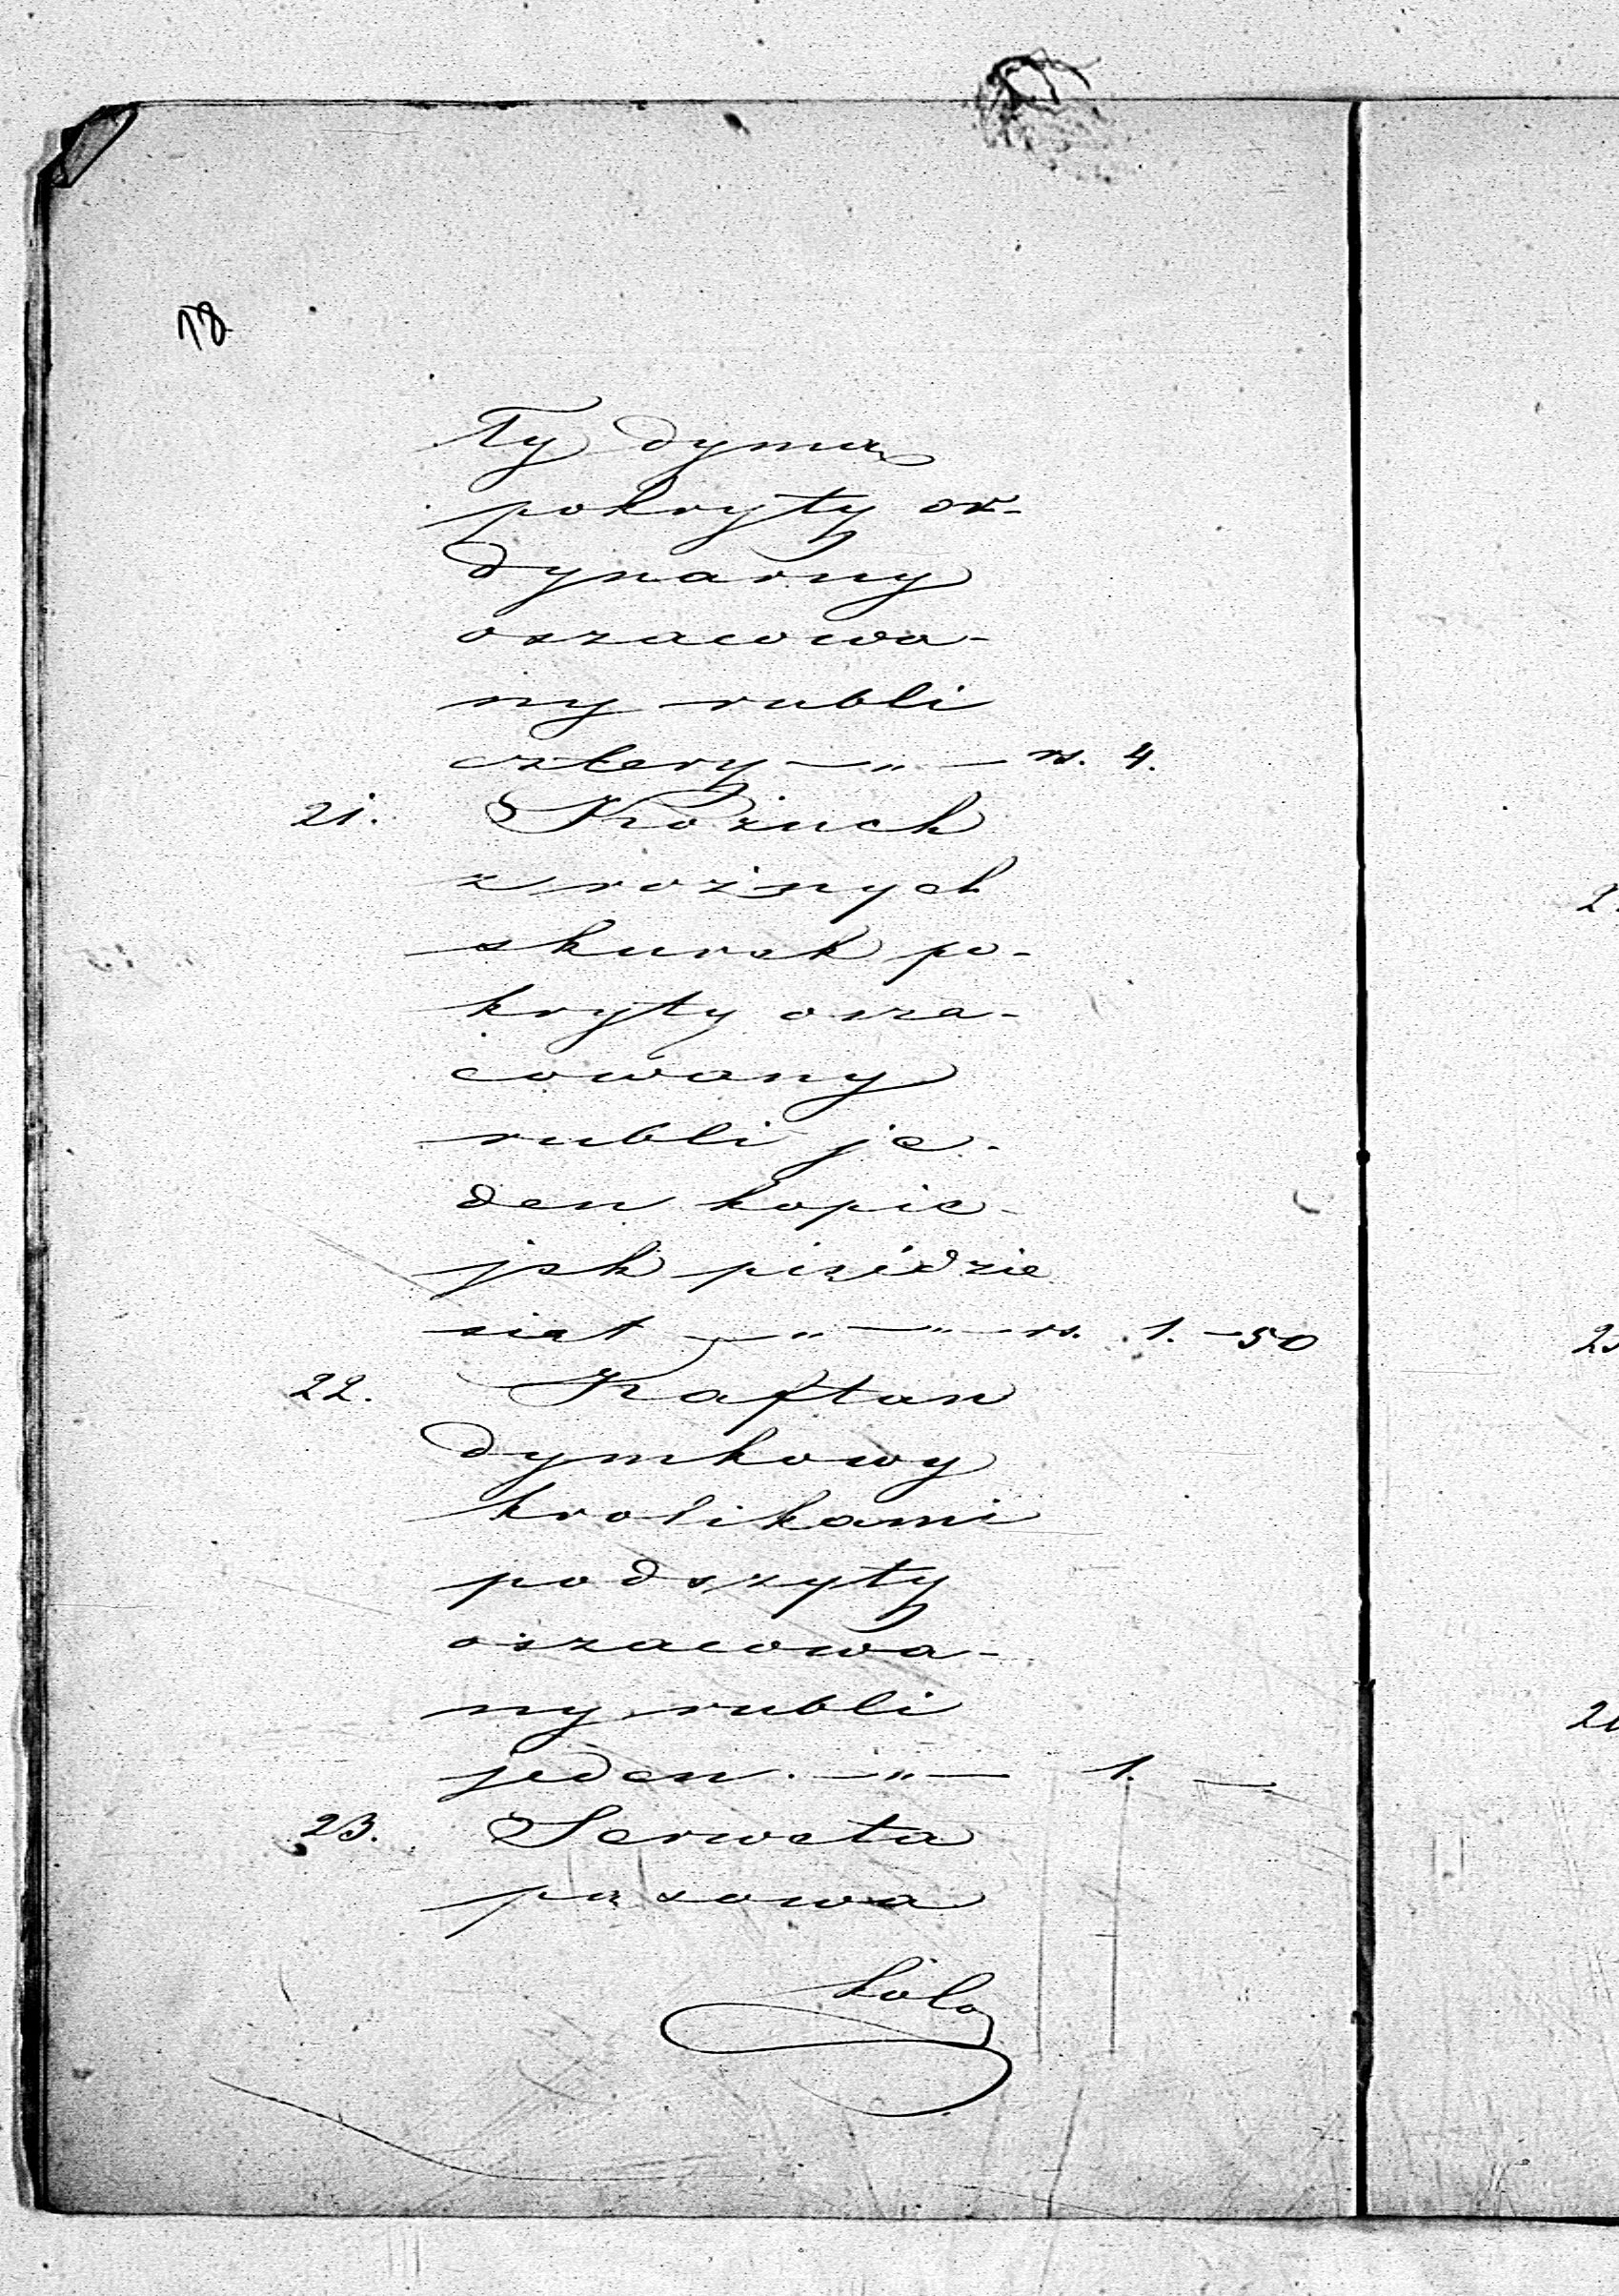 18
Ty dyma
pokryty or-
dynarny
oszacowa-
ny rubli
cztery —„— rs. 4.
21. Kożuch
z rożnych
skurek po-
kryty osza-
cowany
rubli je-
den kopie-
jek pięćdzie
siat —„—„— rs. 1.—50
22. Kaftan
dymkowy
krolikami
podszyty
oszacowa-
ny rubli
jeden.—„— 1.—
23. Serweta
pąsowa
koło